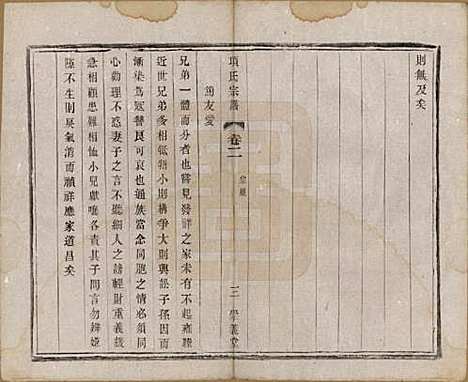 則無及矣
項氏宗譜
卷二
家規
三
篤友愛
兄弟一體而分者也嘗見發祥之家未有不起雍睦
近世兄弟多相牴牾小則構爭大則輿訟子孫因而
漸染爲寇讐良可哀也通族當念同胞之情務須同
心勸理不惑妻子之言不聽細人之謗輕財重義緩
急相顧患難相恤小兒獻嗤各責其子問言勿辨婭
隆不生則戾氣消而禎祥應家道昌矣